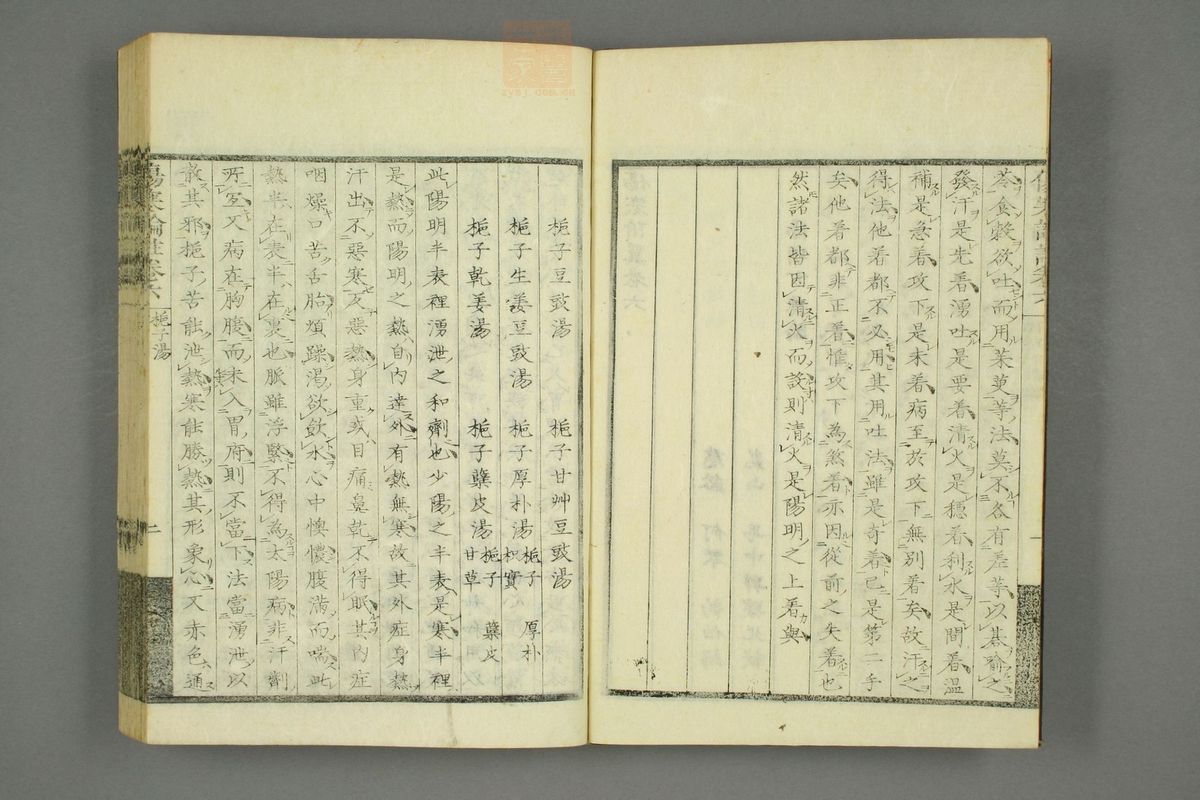 苓金穀欲吐而用茱萸等法莫不各有差等以棊喻之
發汗是先着湧吐是要着清火是穩着利水是間着溫
補是急着攻下是末着病至於攻下無別着矣故汗之
得法他着都不必用其用吐法雖是奇着已是第二手
矣他着都非正着惟攻下為煞着亦因從前之失着也
然諸法皆因清火而設則清火是陽明之上着與
梔子豆豉湯 梔子甘艸豆豉湯
梔子生姜豆豉湯 梔子厚朴湯 梔子 厚朴 枳實
梔子乾姜湯 梔子蘗皮湯 梔子 蘗皮 甘草
此陽明半表裡湧泄之和劑也少陽之半表是寒半裡
是熱而陽明之熱自內達外有熱無寒故其外症身熱
汗出不惡寒反惡熱身重或目痛鼻乾不得眠其內症
咽燥口苦舌胎煩躁渴欲飲水心中懊憹腹滿而喘此
熱半在表半在裏也脈雖浮緊不得為太陽病非汗劑
所宜又病在胸腹而未入胃府則不當下法當湧泄以
散其邪梔子苦能泄熱寒能勝熱其形象心又赤色通
傷寒論註卷六 梔子湯 二
ZYSJ.COM.CN